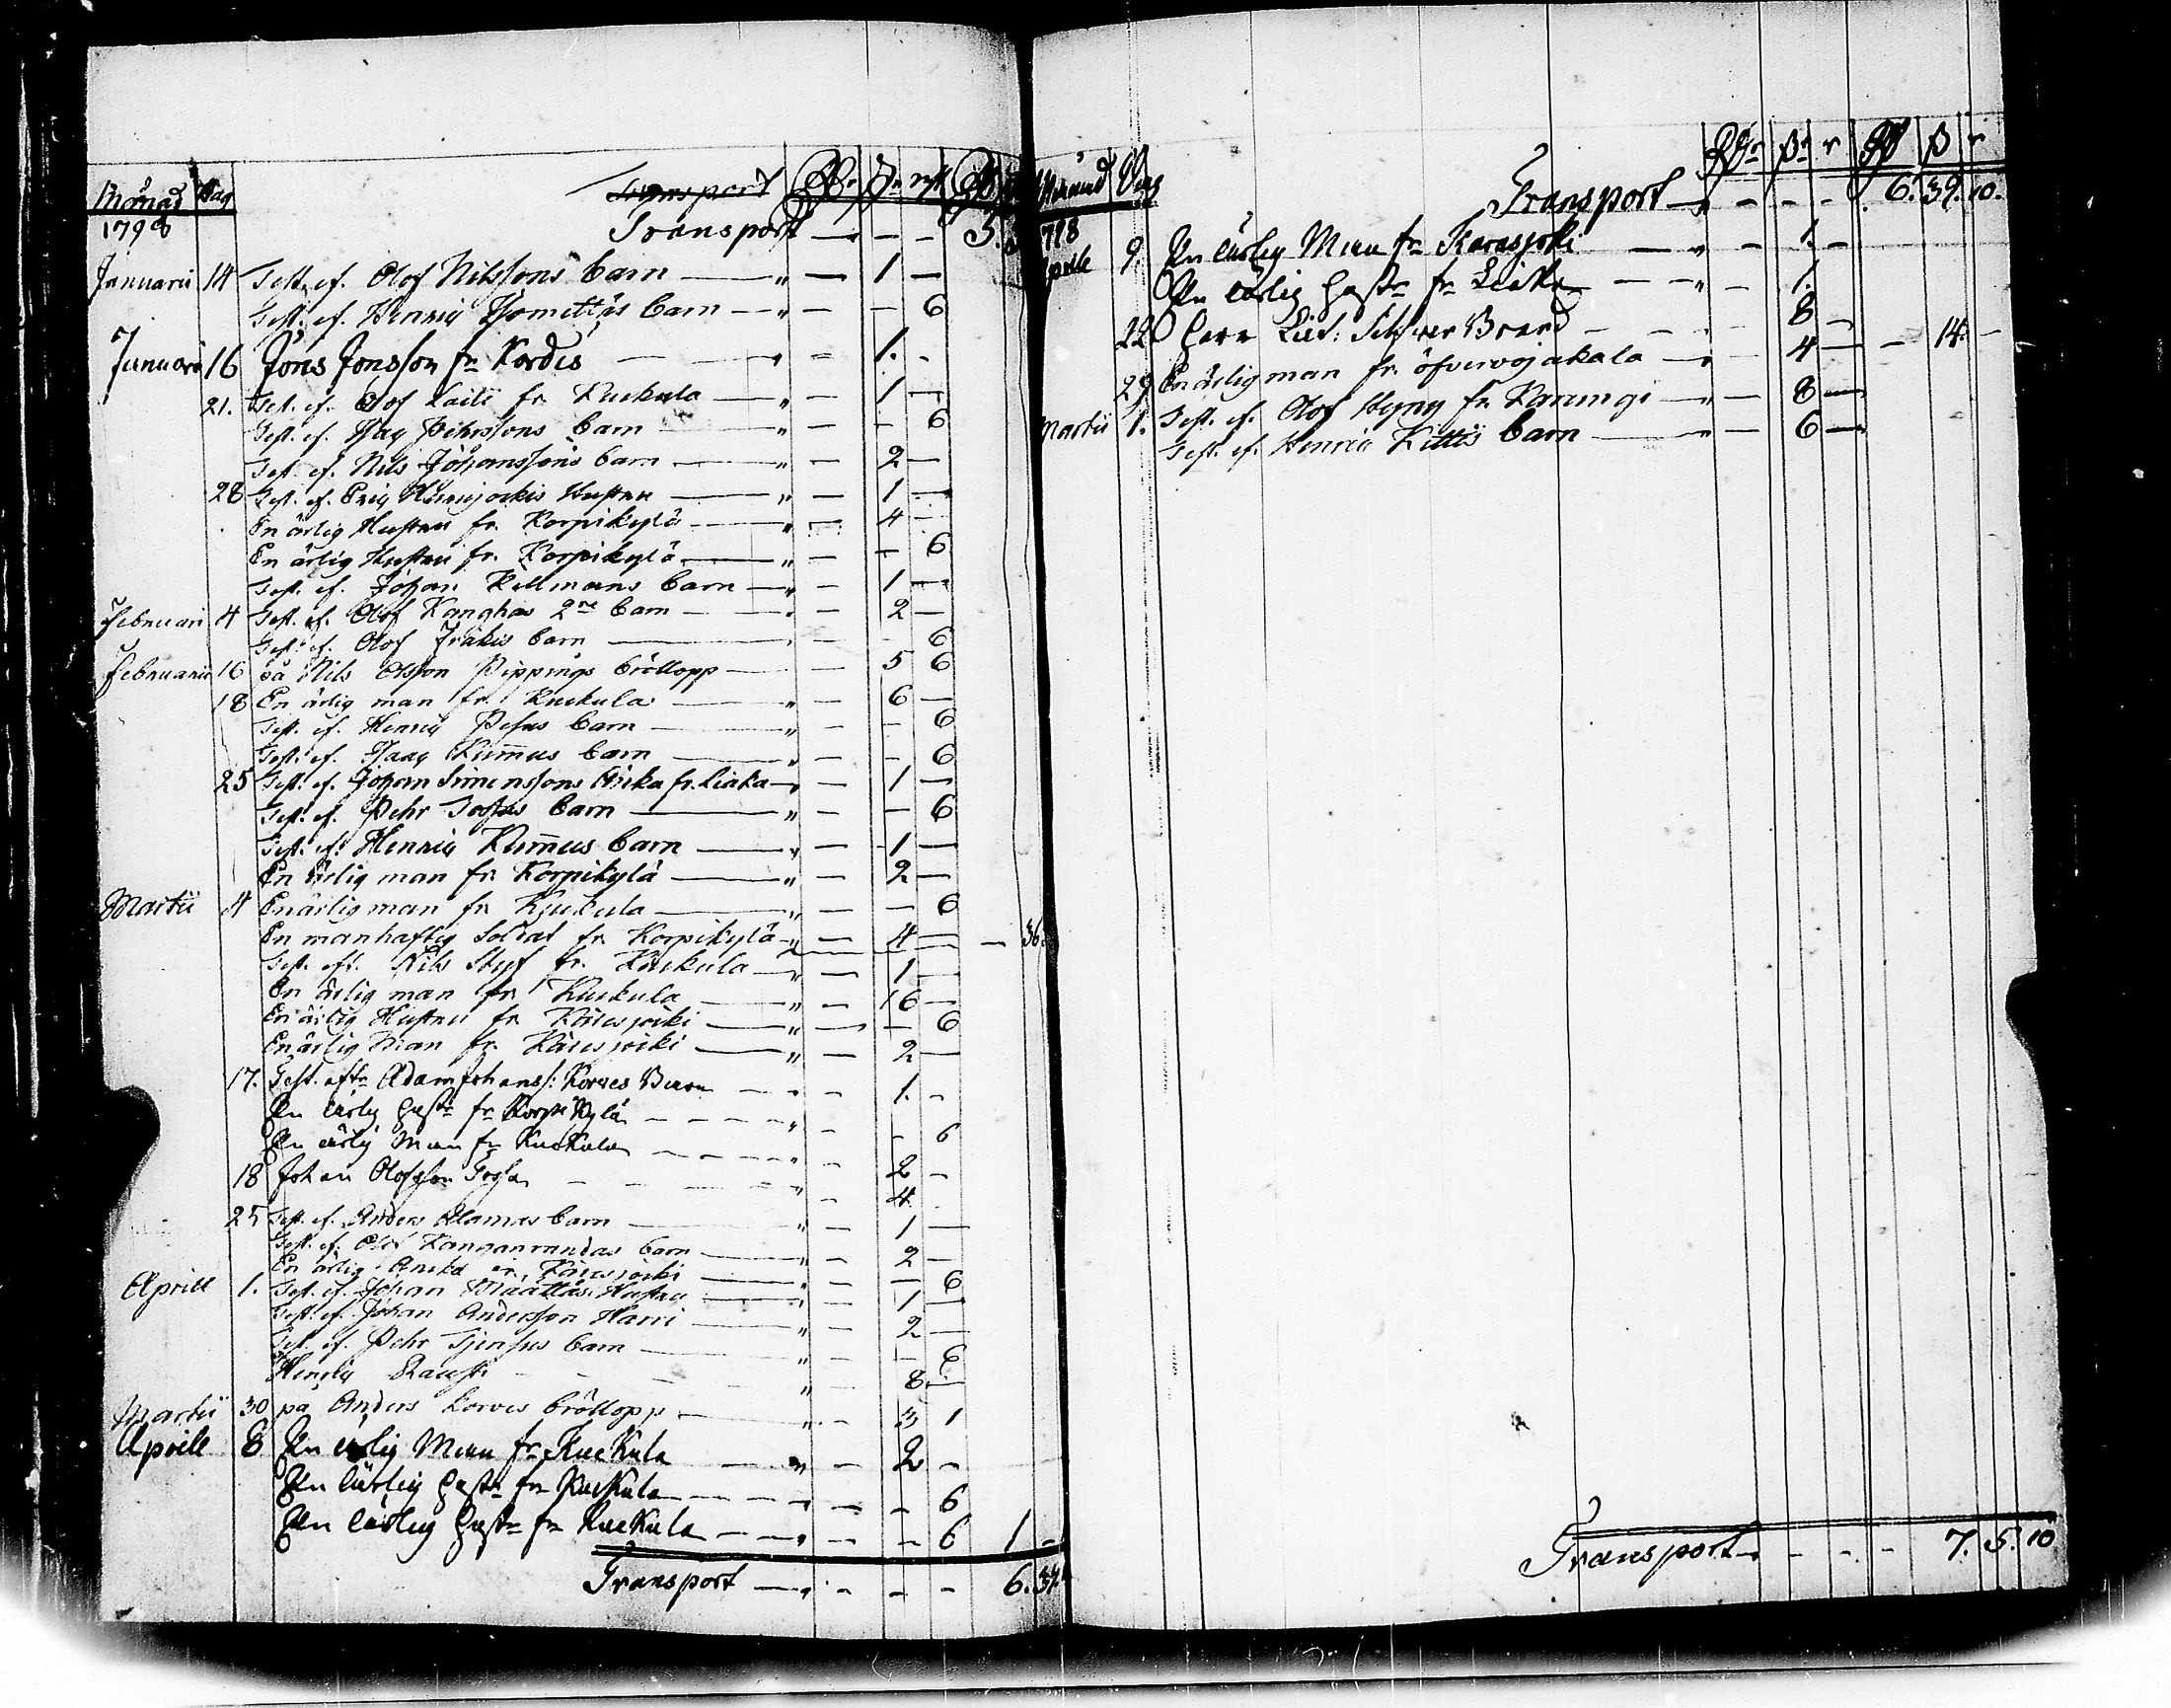 Månad Dag Transport Rdr ß rst Rd
1798 Transport — - - 5.
Januarii 14 Test. ef. Olof Nilssons barn — " — 1 —
Test. ef. Henric barn — " — - 6
Januarii 16 Jöns Jonsson fr Kordis — " - 1. -
21. Test. ef. Olof Laiti fr. Kuckula — " — 1 —
Test. ef. Isac Pehrssons barn — " — - 6
Test. ef. Nils Johanssons barn — " — 2 —
28 Test. ef. Eric Hustru — " — 1 —
En ärlig Hustru fr. Korpikylä — " — 4 —
En ärlig Hustru fr. Korpikylä — " — - 6
Test. ef. Johan Killmans barn — " — 1 —
Februari 4 Test. ef. Olof Kanghas 2ne barn — " — 2 —
Test. ef. Olof barn — " — - 6
Februarii 16 på Nils Olsson Pippings bröllopp — — 5 6
18 En ärlig man fr. Kuckula — " — 6 —
Test. ef. Henric barn — " — - 6
Test. ef. Isaac Kum̄us barn — " — - 6
25 Test. ef. Johan Simonssons Enka fr. Liaka — " — 1 —
Test. ef. Pehr barn — " — - 6
Test. ef. Henric Kum̄us barn — " — 1 —
En ärlig man fr. Korpikylä — " — 2 —
Martii 4 En ärlig man fr. Kuckula — " — — 6
En manhaftig Soldat fr. Korpikylä — " — 4 — — 36.
Test. eft. Nils Styf fr. Kuckula — " — 1 —
En ärlig man fr. Kuckula — " — 16 —
En ärlig Hustru fr. Karasjocki — " — — 6
En ärlig Man fr. Karasjocki — " — 2 —
17. Test. eftr Adam Johanss: Korves Barn — " - 1. -
En ärlig Hustr fr Korpi Kylä — — " - - 6
En ärlig Man fr Kuckula — — " - 2 -
18 Johan Olofsson — — " - 4
25 Test. ef. Anders barn — " — 1 —
Test. ef. Olof barn — " — 2 —
En ärlig Karasjocki — " — — 6
Aprill 1. Test. ef. Johan Hustru — " — 1 —
Test. ef. Johan Andersson Harri — " — 2 —
Test. ef. Pehr barn — " — — 6
Henric — " — 8 —
Martii 30 på Anders Korves bröllopp — " — 3 1
Aprill 8 En ärlig Man fr Kuckula — " — 2 -
En ärlig Hustr fr Kuckula — " — - 6
En ärlig Hustr fr Kuckula — " — - 6 1 -
Transport — " - - - 6. 39.
Månad Dag Rdr ß r Rd ß r
Transport — - - - 6. 39. 10.
798
Aprill 9. En ärlig Man fr Karasjoki — " — 1. —
En ärlig Hustr fr Liaka — — " — 1.
22 Herr Lieut: Brand — - - 8 — — 14. —
29 En ärlig man fr. öfvervojakala — " — 4 —
Martii 1. Test. ef. Olof fr. Karungi — " — 8 —
Test. ef. Henric Kittis barn — " — 6 —
Transport — - - - 7. 5. 10